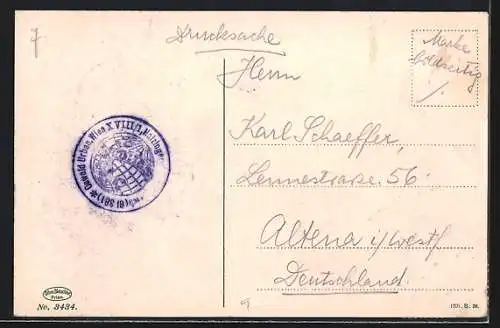 7
Drucksache
Marke
bildseitig
Herrn
Karl Schaeffer,
Lennestrasse 56
Altena i/Westf
Deutschland.
Oswald Urban, Wien XVIII/1,
No. 3434.